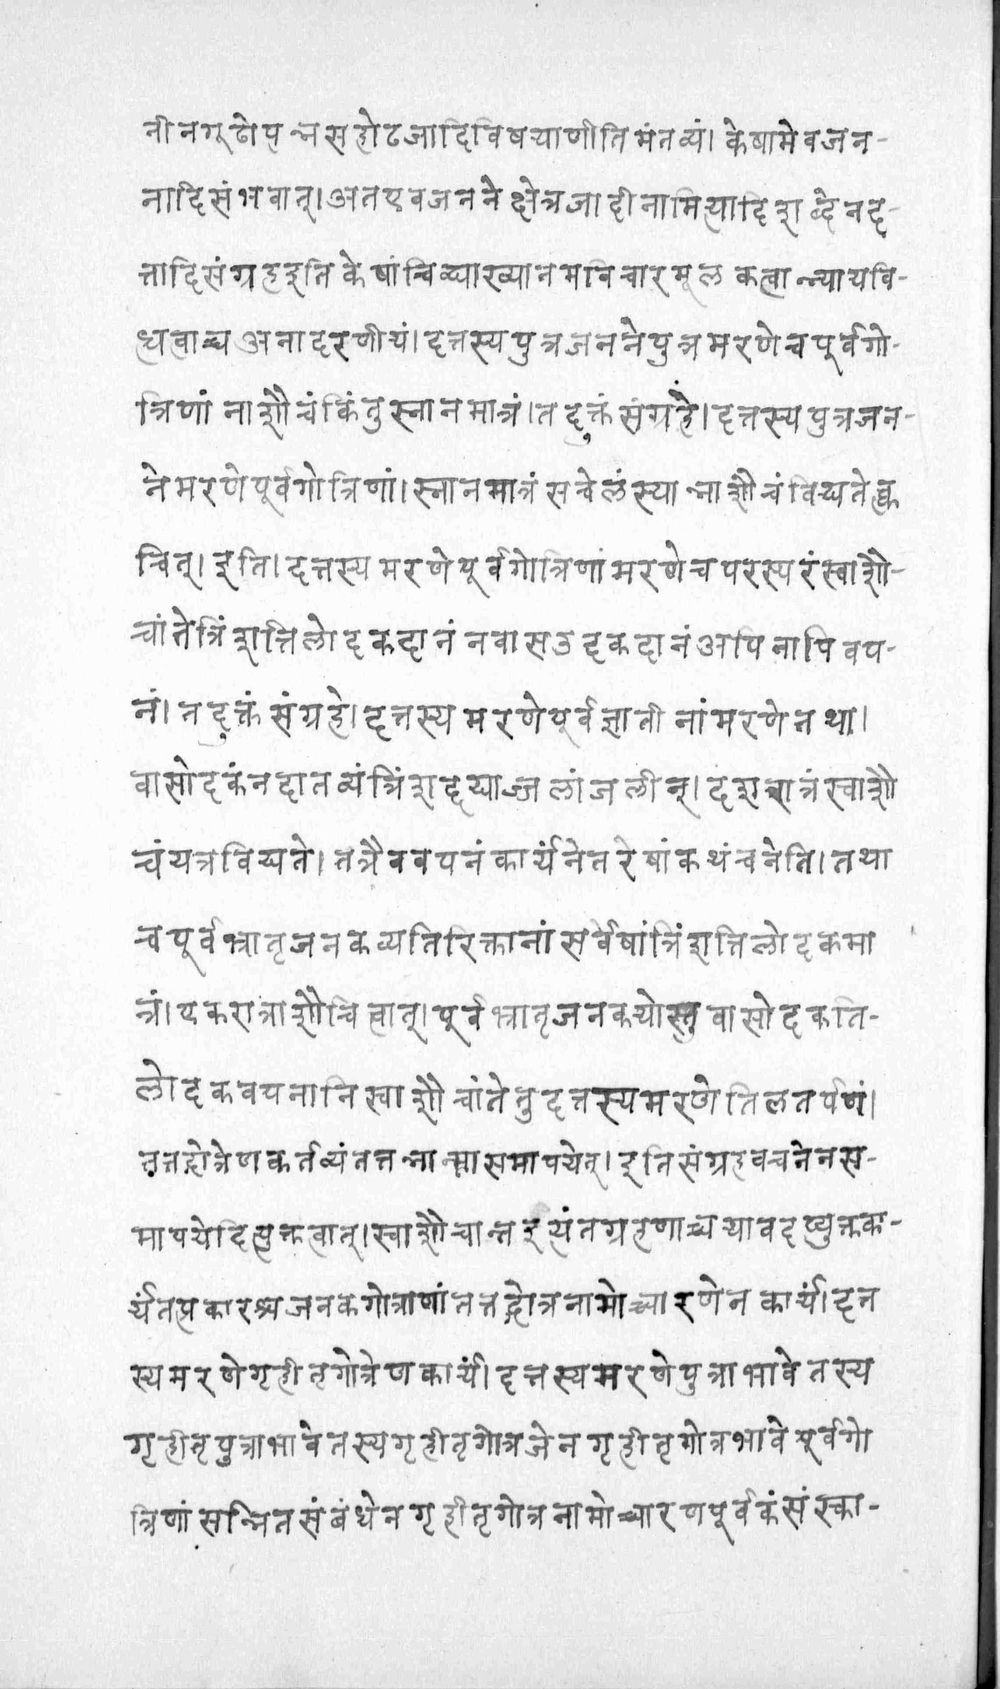 नीनगूढोपन्नसहोढजादिविषयाणीतिमंतव्यं। केषामेवजन-
नादिसंभवात्।अतएवजननेक्षेत्रजादीनामित्यादिशब्देनद-
त्तादिसंग्रहइति केषांचिव्द्याख्यानमविचारमूलकत्वान्न्यायवि-
ध्वत्वाच्च अनादरणीयं।दत्तस्यपुत्रजननेपुत्रमरणेचपूर्वगो-
त्रिणां नाशौचंकिंतुस्नानमात्रं।तदुक्तंसंग्रहे।दत्तस्यपुत्रजन-
नेमरणेपूर्वगोत्रिणां।स्नानमात्रंसचेलंस्यान्नाशौचंविद्यतेक्व
चित्।इति।दत्तस्यमरणेपूर्वगोत्रिणांमरणेचपरस्परंस्वाशौ-
चांतेत्रिंशत्तिलोदकदानंनवासउदकदानंअपिनापिवप-
नं।तदुक्तं संग्रहे।दत्तस्यमरणेपूर्वज्ञातीनांमरणेतथा।
वासोदकंनदातव्यंत्रिंशद्दद्याज्जलांजलीन्।दशरात्रंस्वाशौ
चंयत्रविद्यते।तत्रैववपनंकार्यंनेतरेषांकथंचनेति।तथा
चपूर्वभ्रातृजनकव्यतिरिक्तानांसर्वेषांत्रिंशत्तिलोदकमा
त्रं।एकरात्राशौचित्वात्।पूर्वभ्रातृजनकयोस्तुवासोदकति-
लोदकवपनानिस्वाशौचांतेतुदत्तस्यमरणेतिलतर्पणं।
तत्तद्गोत्रेणकर्तव्यंतत्तन्नान्मासमापयेत्।इतिसंग्रहवचनेनस-
मापयेदित्युक्तत्वात्।स्वाशौचान्तइत्यंतग्रहणाच्चयावदप्युक्तका-
र्यंतत्प्रकारश्चजनकगोत्राणांतत्तद्गोत्रनामोच्चारणेनकार्यं।दत्त
स्यमरणेगृहीतृगोत्रेणकार्यं।दत्तस्यमरणेपुत्राभावेतस्य
गृहीतृपुत्राभावेतस्यगृहीतृगोत्रजेनगृहीतृगोत्रभावेपूर्वगो
त्रिणांसन्नितसंबंधेनगृहीतृगोत्रनामोच्चारणपूर्वकंसंस्का-